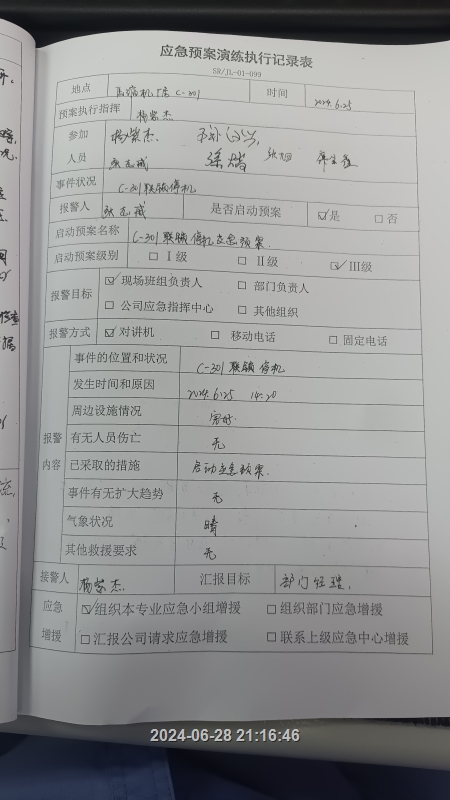 应急预案演练执行记录表
SR/JL-01-099
地点 压缩机厂房 C-301 时间 2024.6.25
预案执行指挥 杨紫杰
参加 杨紫杰.
人员 张志诚
事件状况 C-301联锁停机
报警人 张志诚 是否启动预案 ☑是 □否
启动预案名称 C-301联锁停机应急预案.
启动预案级别 □ Ⅰ级 □ Ⅱ级 ☑ Ⅲ级
报警目标 ☑ 现场班组负责人 □ 部门负责人
□ 公司应急指挥中心 □ 其他组织
报警方式 ☑ 对讲机 □ 移动电话 □ 固定电话
事件的位置和状况 C-301联锁停机
发生时间和原因 2024.6.25 14:20
周边设施情况 完好.
报警 有无人员伤亡 无
内容 已采取的措施 启动应急预案.
事件有无扩大趋势 无
气象状况 晴
其他救援要求 无
接警人 杨紫杰. 汇报目标 部门经理.
应急 ☑组织本专业应急小组增援 □组织部门应急增援
增援 □汇报公司请求应急增援 □联系上级应急中心增援
2024-06-28 21:16:46